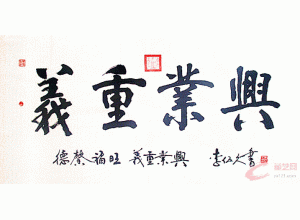 義重業興
德馨福旺 義重業興 李 書